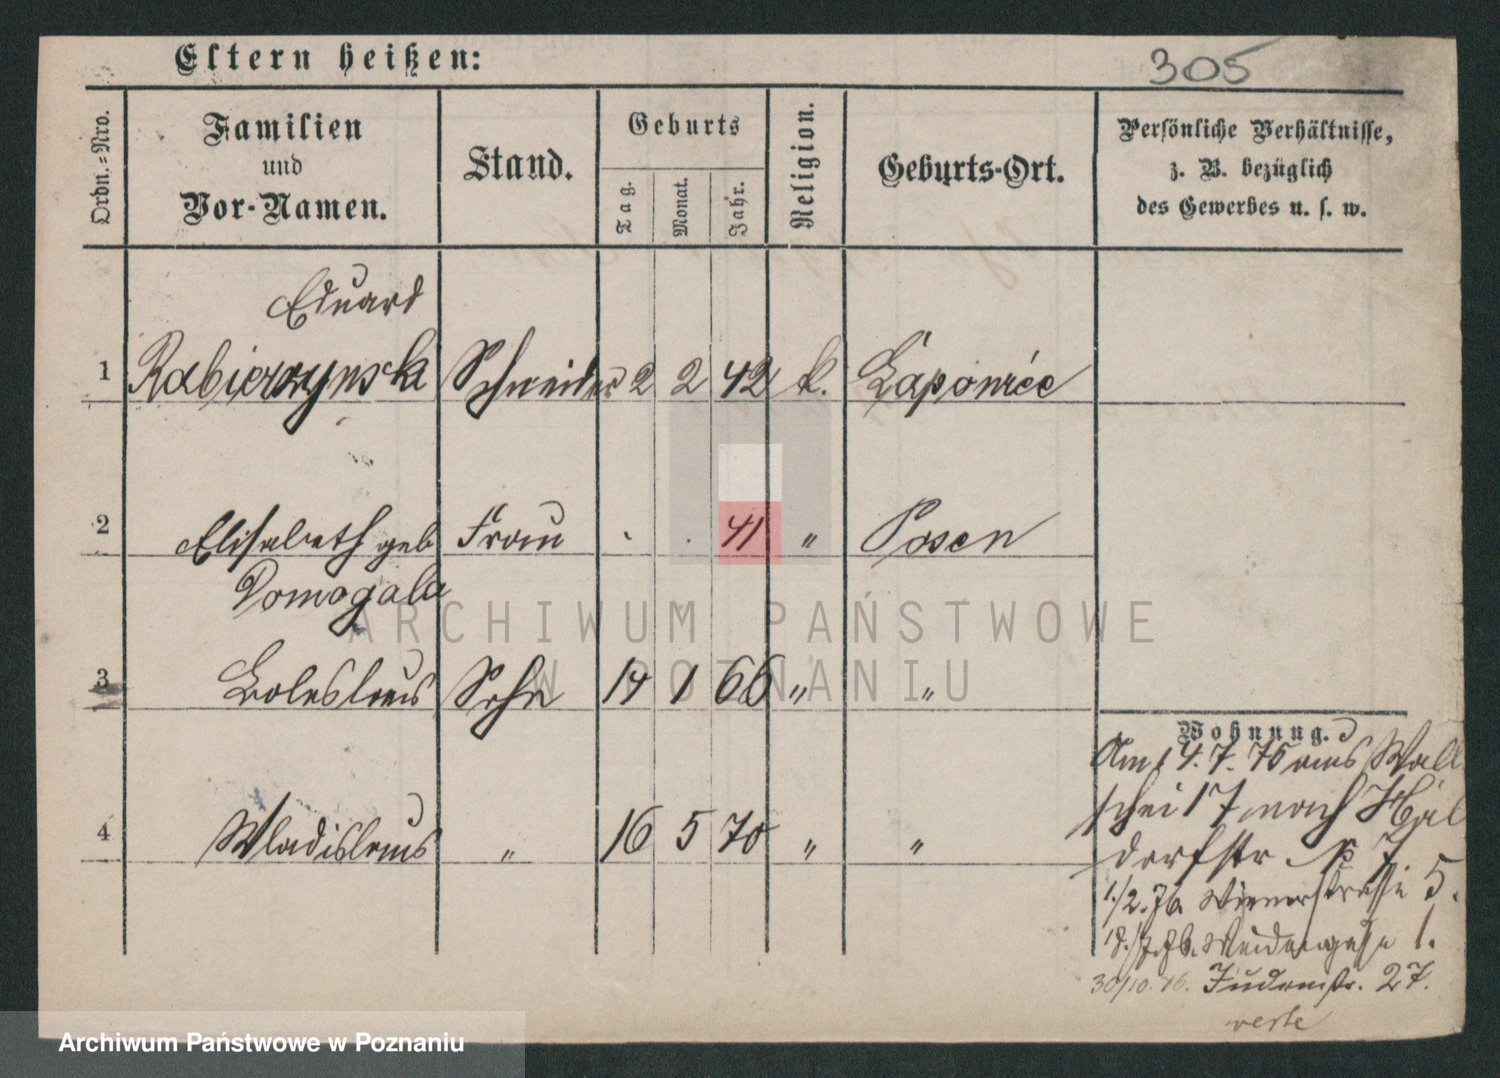 305
Eltern heißen:
Ordn.=Nro.
Familien
und
Vor-Namen.
Stand.
Geburts
Tag.
Monat.
Jahr.
Religion.
Geburts-Ort.
Persönliche Verhältnisse,
z. B. bezüglich
des Gewerbes u. s. w.
Eduard
1 Rabierzynski Schneider 2 2 42 k.
2 Elisabeth geb Frau 41 " Posen
Domogala
3 Boleslaus Sohn 14 1 66 " "
4 Wladislaus " 16 5 70 " "
Wohnung.
Am 14.7.75 aus Wall
schei 17 nach
dorfstr. № 7.
1./2.76. Wienerstrasse 5.
Weidengasse 1.
30/10. 76. Judenstr. 27.
verte
ARCHIWUM PAŃSTWOWE
W POZNANIU
Archiwum Państwowe w Poznaniu